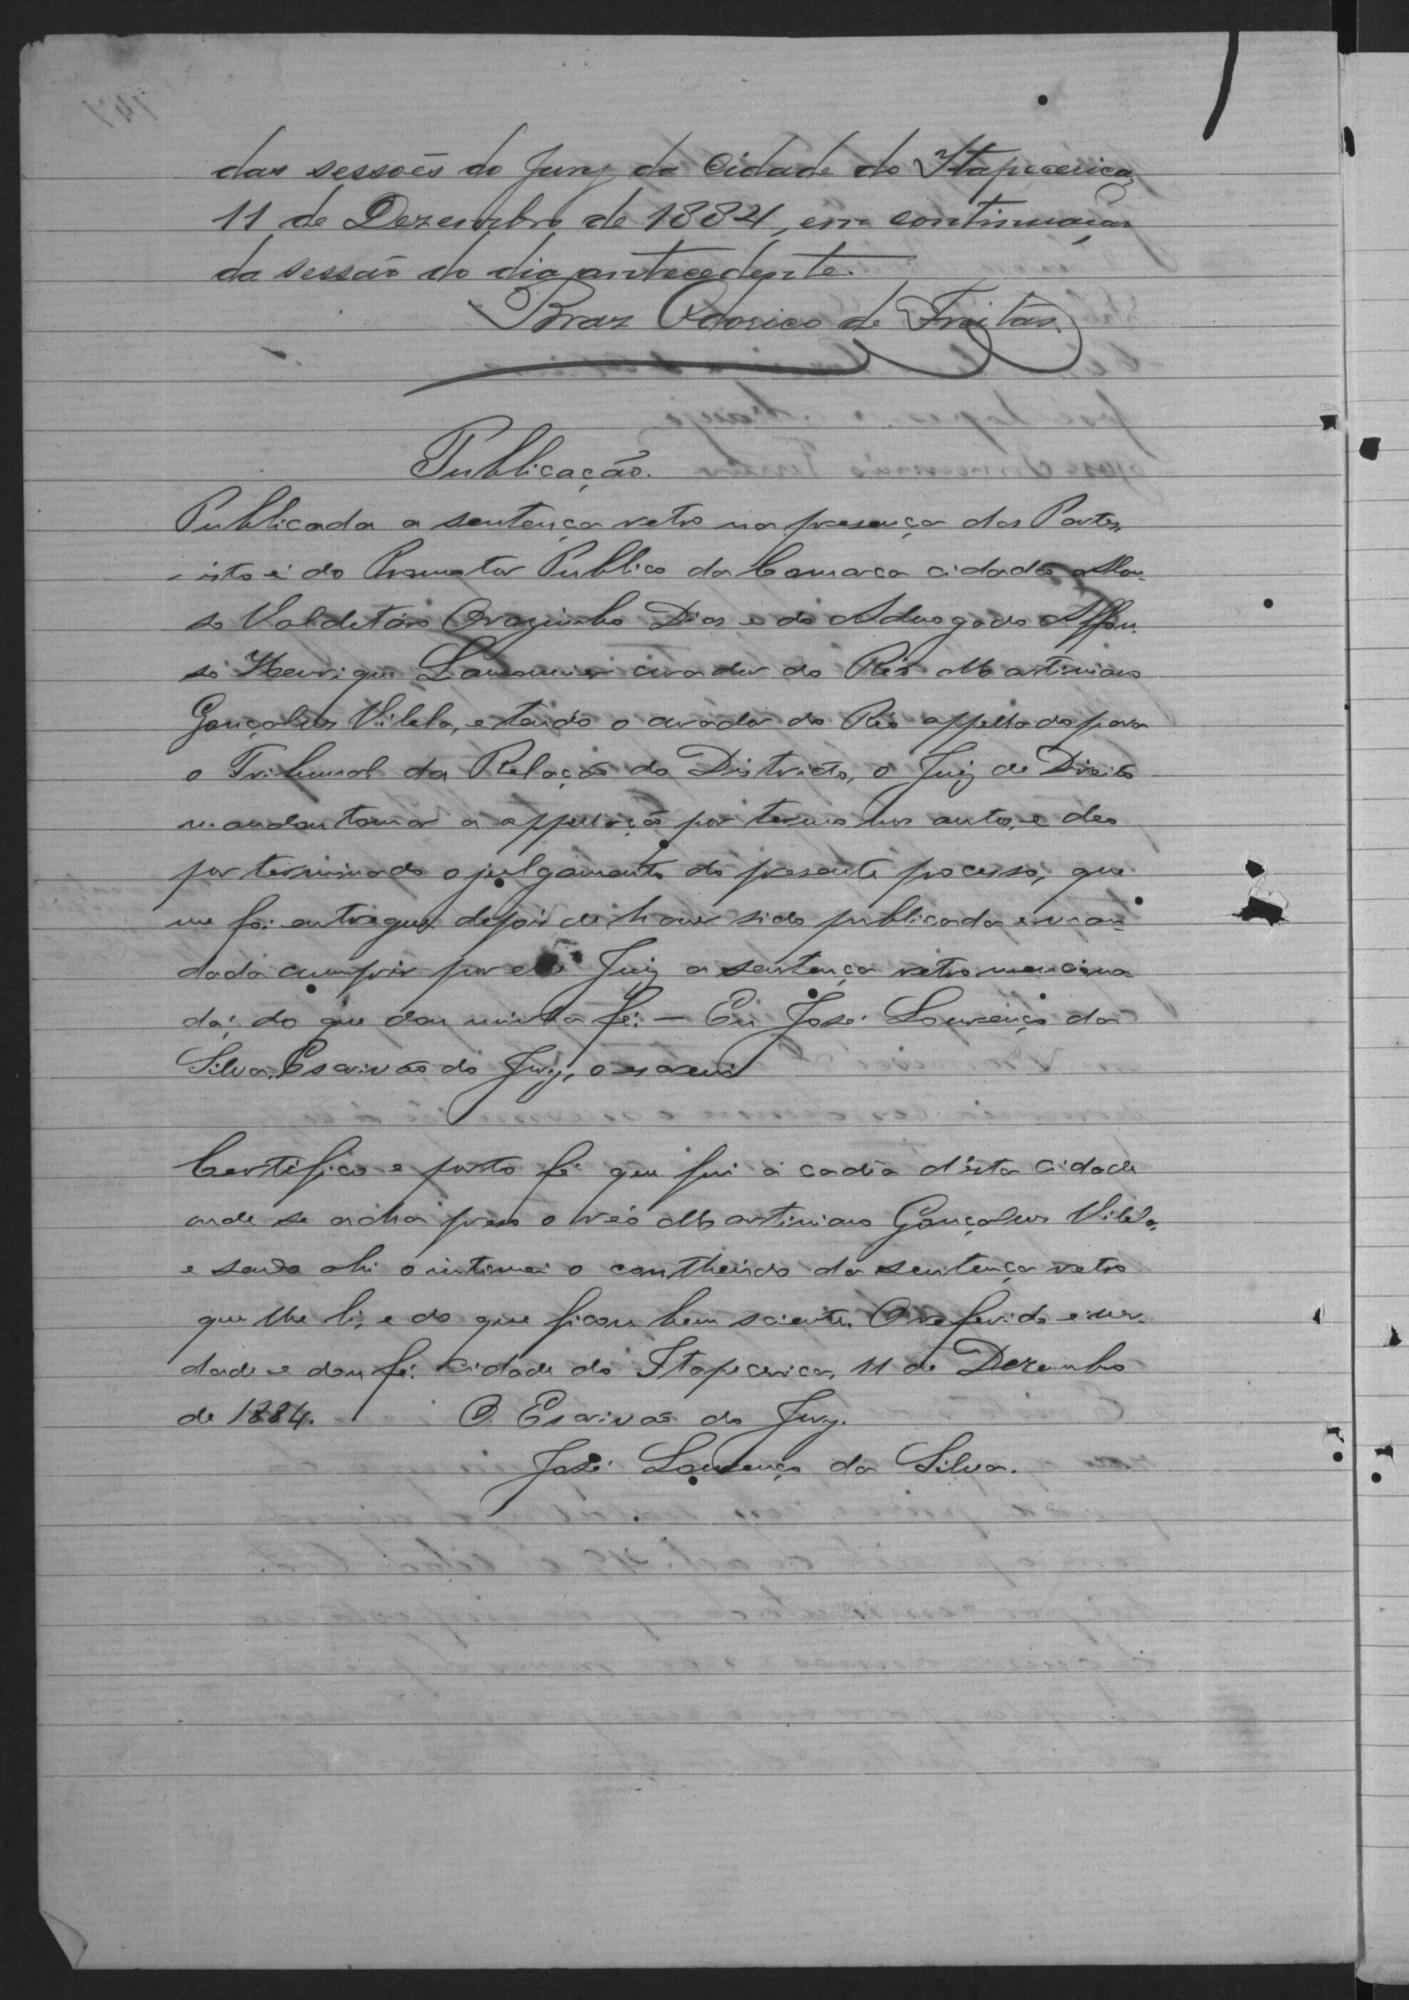 das sessões do Jury da Cidade do Itapecerica,
11 de Dezembro de 1884, em continuação
da sessão do dia antecedente.
Braz Odorico de Freitas
Publicação.
Publicada a sentença retro na presença das Partes,
isto é do Promotor Publico da Comarca cidadão
Valdetáro Dias e do Advogado Affon-
so Henrique curador do Réo Martiniano
Gonçalves Vilela, e tendo o curador do Réo appellado para
o Tribunal da Relação do Districto, o Juiz de Direito
mandou tomar a appellação por termo nos autos, e deo
por terminado o julgamento do presente processo, que
me foi entregue depois de haver sido publicada e man-
dada cumprir por elle Juiz a sentença retro menciona
da; do que dou minha fé. — Eu José Lourenço da
Silva, Escrivão do Jury, o escrevi
Certifico e porto fé que fui á cadêa d'ésta Cidade
onde se acha preso o réo Martiniano Gonçalves Vilela,
e sendo ahi o intimei o contheúdo da sentença retro
que lhe li, e do que ficou bem sciente. O referido é ver-
dade e dou fé. Cidade do Itapecerica, 11 de Dezembro
de 1884. O Escrivão do Jury.
José Lourenço da Silva.